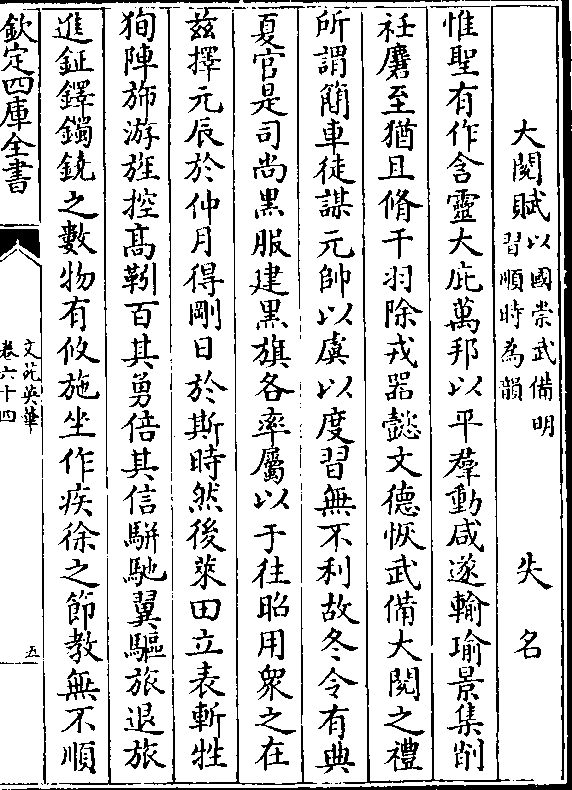 大閱賦以國崇武備明習順時為韻 失名
惟聖有作含靈大庇萬邦以平羣動咸遂輸瑜景集削
衽麕至猶且脩干羽除戎器懿文德恢武備大閱之禮
所謂簡車徒謀元帥以虞以度習無不利故冬令有典
夏官是司尚黒服建黒旗各率屬以于往昭用衆之在
茲擇元辰於仲月得剛日於斯時然後萊田立表斬牲
狥陣斾游旌控髙靷百其勇倍其信駢馳翼驅旅退旅
進鉦鐸鐲鐃之數物有攸施坐作疾徐之節教無不順
欽定四庫全書
文苑英華
卷六十四
五